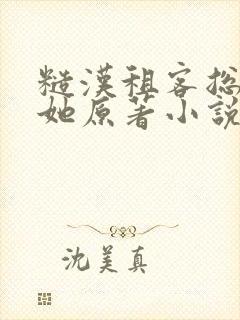 糙漢租客撩
她原著小說
沈美真